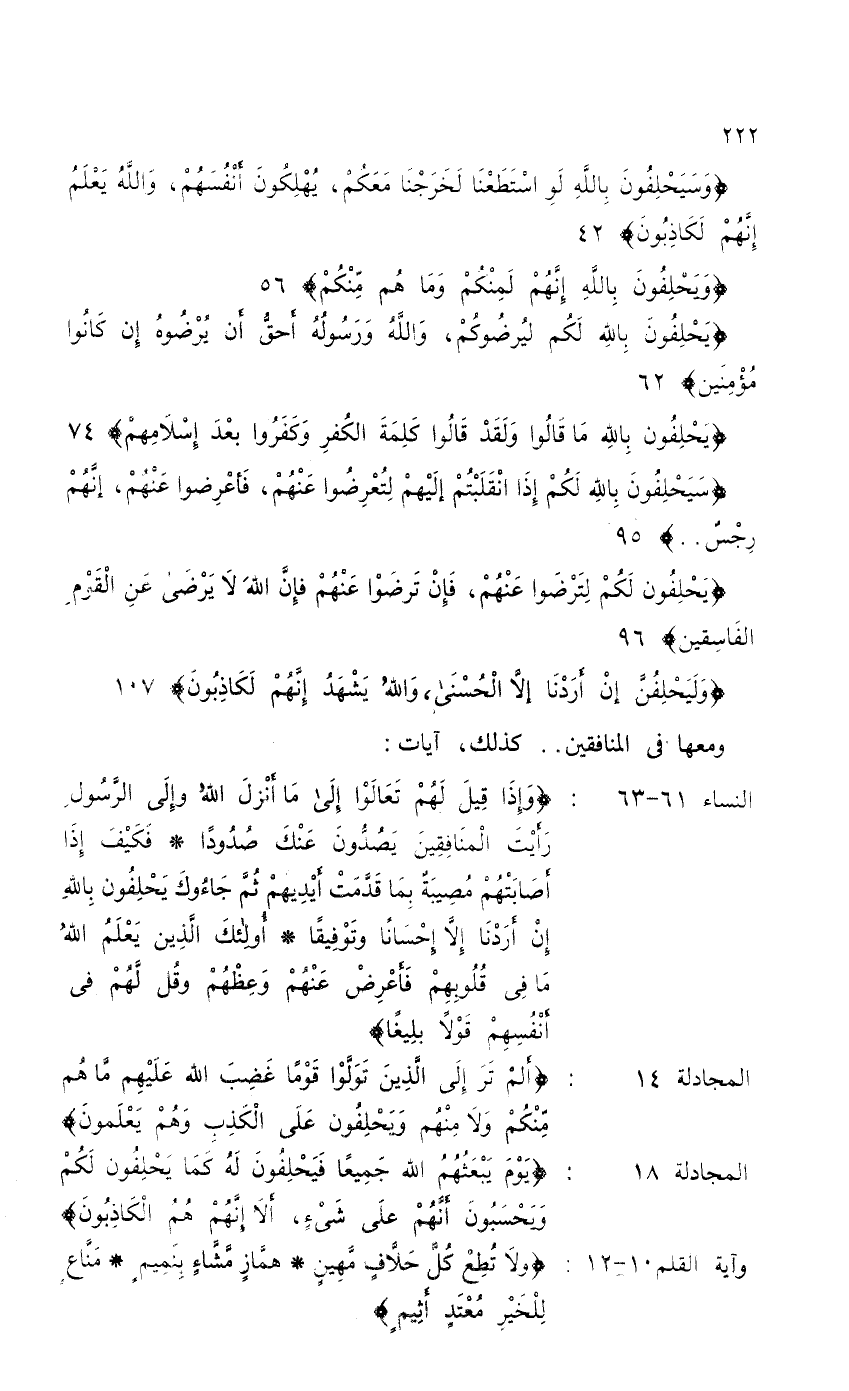 ٢٢٢
﴿وَسَيَحْلِفُونَ بِاللَّهِ لَوِ اسْتَطَعْنَا لَخَرَجْنَا مَعَكُمْ، يُهْلِكُونَ أَنْفُسَهُمْ، وَاللَّهُ يَعْلَمُ
إِنَّهُمْ لَكَاذِبُونَ﴾ ٤٢
﴿وَيَحْلِفُونَ بِاللَّهِ إِنَّهُمْ لَمِنْكُمْ وَمَا هُم مِّنْكُمْ﴾ ٥٦
﴿يَحْلِفُونَ بِاللهِ لَكُم ليُرضُوكُمْ، وَاللَّهُ وَرَسُولُهُ أَحقُّ أَن يُرْضُوهُ إِن كَانُوا
مُؤْمِنَين﴾ ٦٢
﴿يَحْلِفُون بِاللهِ مَا قَالُوا وَلَقَدْ قَالُوا كَلِمَةَ الكُفرِ وَكَفَرُوا بعْدَ إِسْلَامِهمْ﴾ ٧٤
﴿سَيَحْلِفُونَ بِاللهِ لَكُمْ إِذَا انْقَلَبْتُمْ إِلَيهِمْ لِتُعْرِضُوا عَنْهُمْ، فَأعْرِضوا عَنْهُمْ، إنَّهُمْ
رِجْسٌ..﴾ ٩٥
﴿يَحْلِفُون لَكُمْ لِتَرْضَوا عَنْهُمْ، فَإِنْ تَرضَوْا عَنْهُمْ فإِنَّ اللهَ لَا يَرْضَىٰ عَنِ الْقَوْمِ
الفَاسِقين﴾ ٩٦
﴿وَلَيَحْلِفُنَّ إِنْ أَرَدْنَا إِلَّا الْحُسْنَىٰ، وَاللهُ يَشْهَدُ إِنَّهُمْ لَكَاذِبُونَ﴾ ١٠٧
ومعها فى المنافقين.. كذلك، آيات :
النساء ٦١–٦٣ : ﴿وَإِذَا قِيلَ لَهُمْ تَعَالَوْا إِلَىٰ مَا أَنْزلَ اللهُ وإِلَى الرَّسُولِ
رَأَيْتَ الْمنَافِقِينَ يَصُدُّونَ عَنْكَ صُدُودًا * فَكَيْفَ إِذَا
أَصَابَتْهُمْ مُصِيبَةٌ بِمَا قَدَّمَتْ أَيْدِيهِمْ ثُمَّ جَاءُوكَ يَحْلِفُون بِاللهِ
إِنْ أَرَدْنَا إِلَّا إِحْسَانًا وتَوْفِيقًا * أُولئِكَ الَّذِين يَعْلَمُ اللهُ
مَا فِى قُلُوبِهِمْ فَأَعْرِضْ عَنْهُمْ وَعِظْهُمْ وقُل لَّهُمْ فى
أَنْفُسِهِمْ قَوْلًا بلِيغًا﴾
المجادلة ١٤ : ﴿أَلمْ تَرَ إِلَى الَّذِينَ تَوَلَّوْا قَوْمًا غَضِبَ الله عَلَيْهِم مَّا هُم
مِّنْكُمْ وَلَا مِنْهُم وَيَحْلِفُون عَلَى الْكَذِبِ وَهُمْ يَعْلَمونَ﴾
المجادلة ١٨ : ﴿يَوْمَ يَبْعَثُهُمُ الله جَمِيعًا فَيَحْلِفُونَ لَهُ كَمَا يَحْلِفُون لَكُمْ
وَيَحْسَبُونَ أَنَّهُمْ علَى شَىْءٍ، أَلَا إِنَّهُمْ هُمُ الْكَاذِبُونَ﴾
وآية القلم ١٠–١٢ : ﴿ولَا تُطِعْ كُلَّ حَلَّافٍ مَّهِينٍ * همَّازٍ مَّشَّاءٍ بِنَمِيمٍ * مَنَّاعٍ
لِلْخَيْرِ مُعْتَدٍ أَثِيمٍ﴾